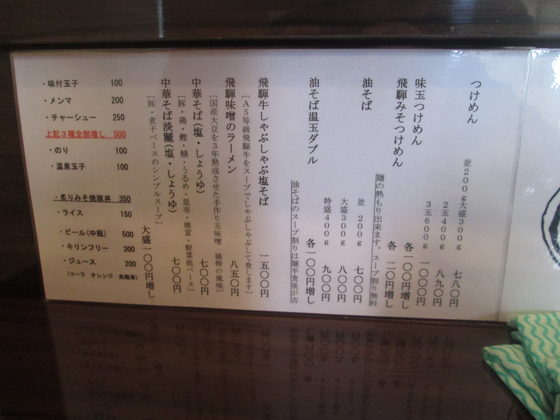 つけめん
並200g大盛300g 七八〇円
2玉400g 八九〇円
3玉600g 一〇〇〇円
味玉つけめん 各一〇〇円増し
飛騨みそつけめん 各二〇円増し
麺の熱もり出来ます。スープ割り無料
油そば
並 200g 七〇〇円
大盛300g 八〇〇円
特盛400g 九〇〇円
油そば温玉ダブル 各一〇〇円増し
油そばのスープ割りは麺半食後が吉
飛騨牛しゃぶしゃぶ塩そば 一五〇〇円
[A5等級飛騨牛をスープでしゃぶしゃぶして食します]
飛騨味噌のラーメン 八五〇円
[国産大豆を3年熟成させた手作り玉味噌 独特の風味]
中華そば(塩・しょうゆ) 七〇〇円
[豚・鶏・鰹・鯖・うるめ・昆布・椎茸・野菜他ベース]
中華そば淡麗(塩・しょうゆ) 七〇〇円
[豚・煮干ベースのシンプルスープ]
大盛一〇〇円増し
・味付玉子 100
・メンマ 200
・チャーシュー 250
上記3種全部増し 500
・のり 100
・温泉玉子 100
・炙りみそ焼豚丼 350
・ライス 150
・ビール(中瓶) 500
・キリンフリー 300
・ジュース 200
(コーラ オレンジ 烏龍茶)